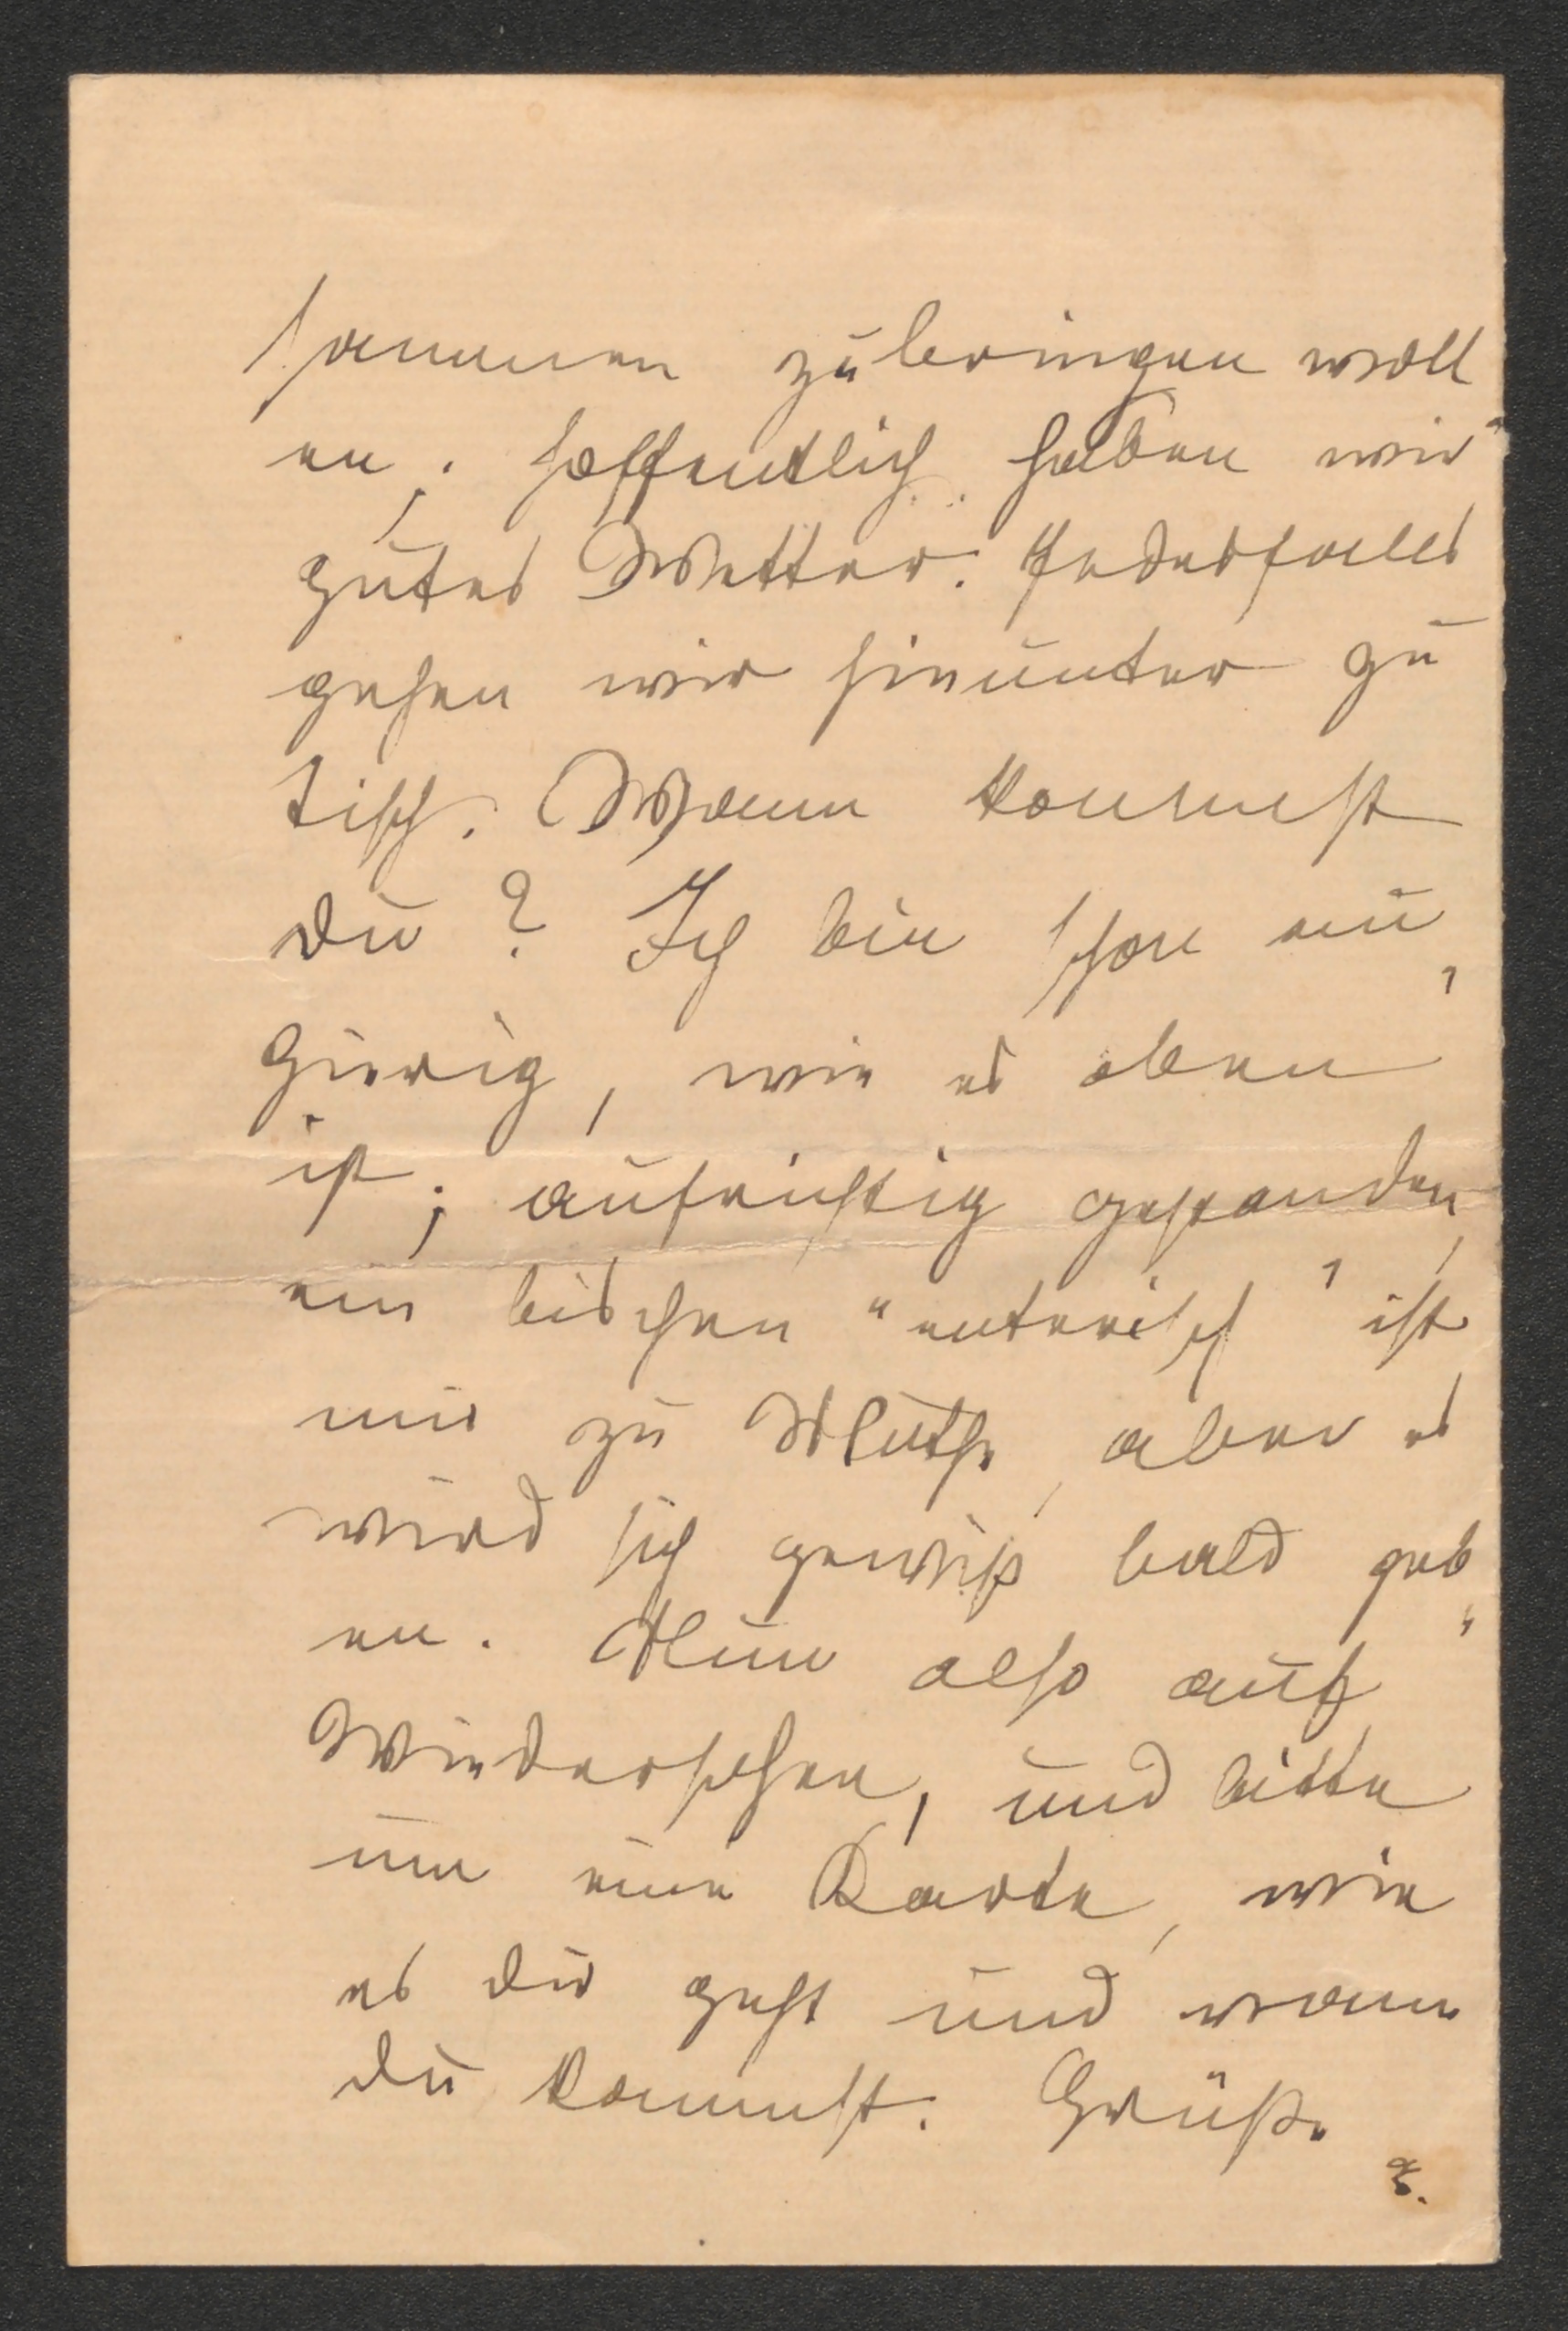 sammen zubringen woll
en; hoffentlich haben wir
gutes Wetter. Jedesfalls
gehen wir hinunter zu
Tisch. Wann kommst
du? Ich bin schon neu-
gierig, wie es oben
ist; aufrichtig gestanden
ein bischen "enterisch" ist
mir zu Muthe, aber es
wird sich gewiß bald geb
en. Nun also auf
Wiedersehen, und bitte
um eine Karte, wie
es dir geht und wann
du kommst. Grüße